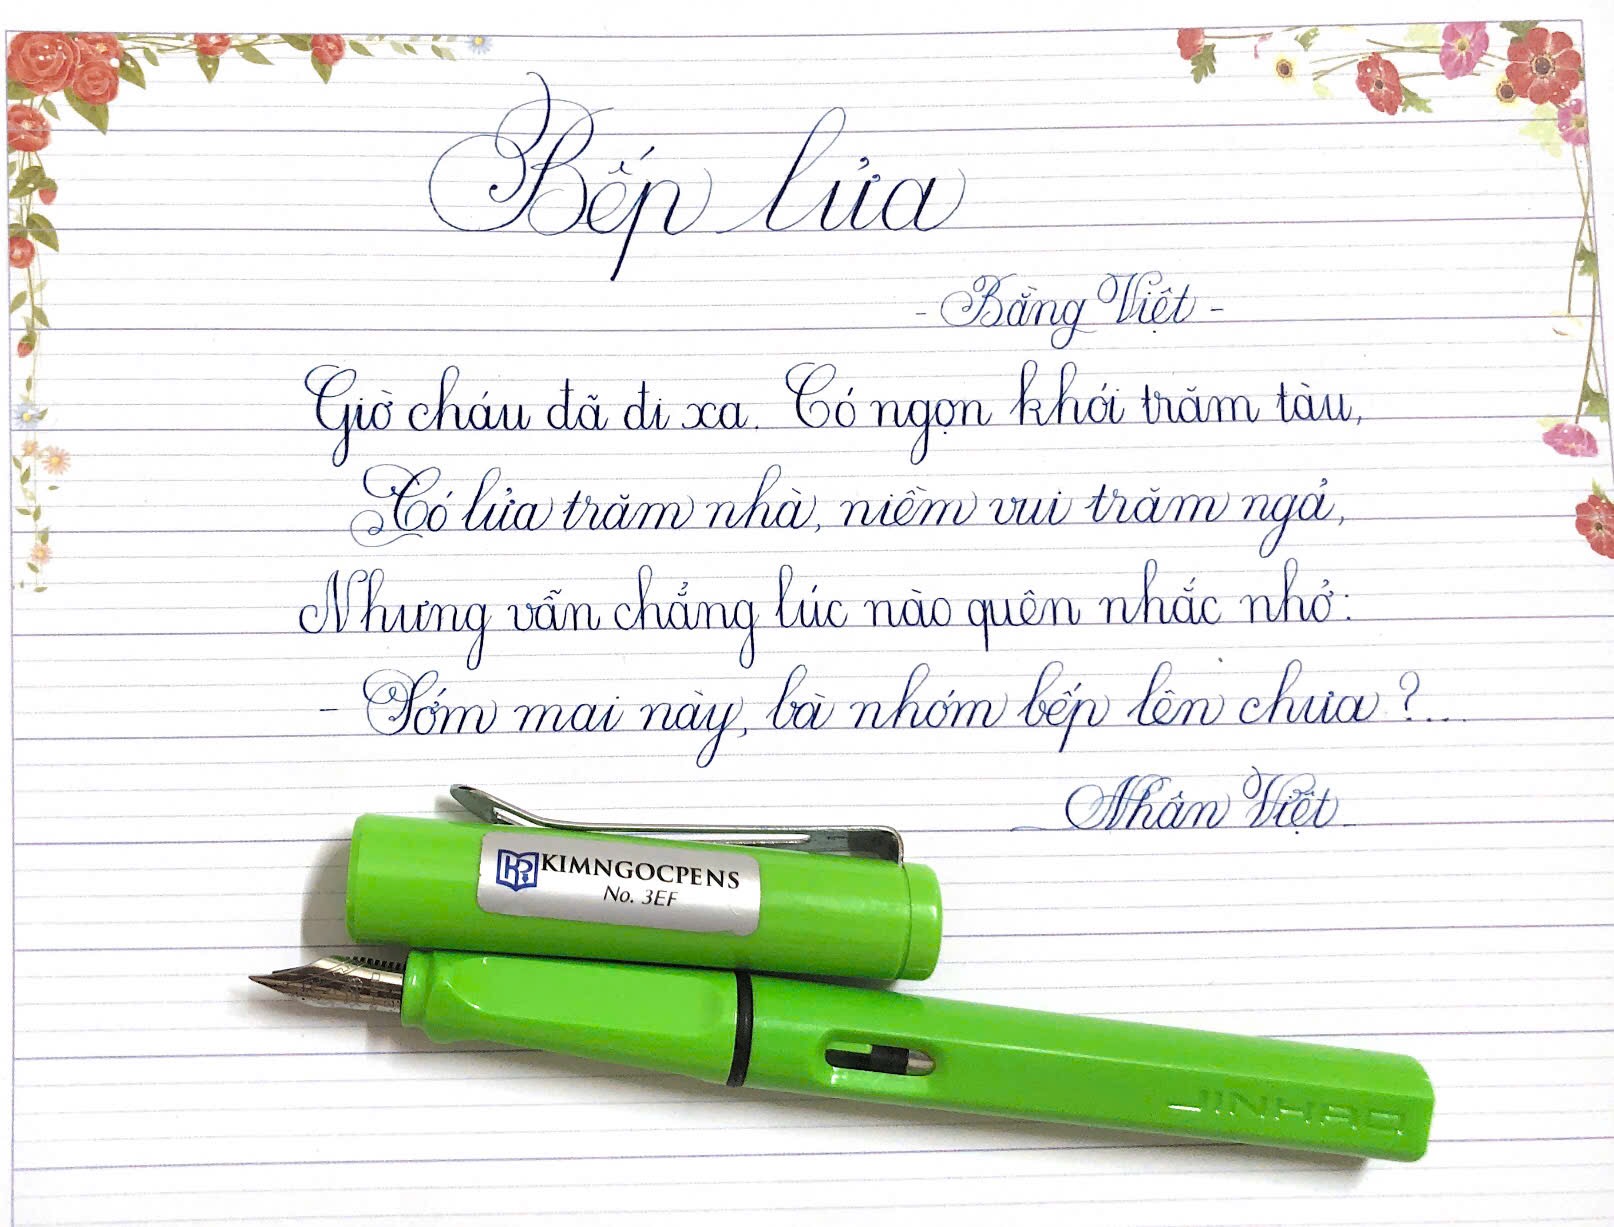 Bếp lửa
- Bằng Việt -
Giờ cháu đã đi xa. Có ngọn khói trăm tàu,
Có lửa trăm nhà, niềm vui trăm ngả,
Nhưng vẫn chẳng lúc nào quên nhắc nhở:
- Sớm mai này, bà nhóm bếp lên chưa?...
Nhân Việt
KIMNGOCPENS
No. 3EF
JINHAO